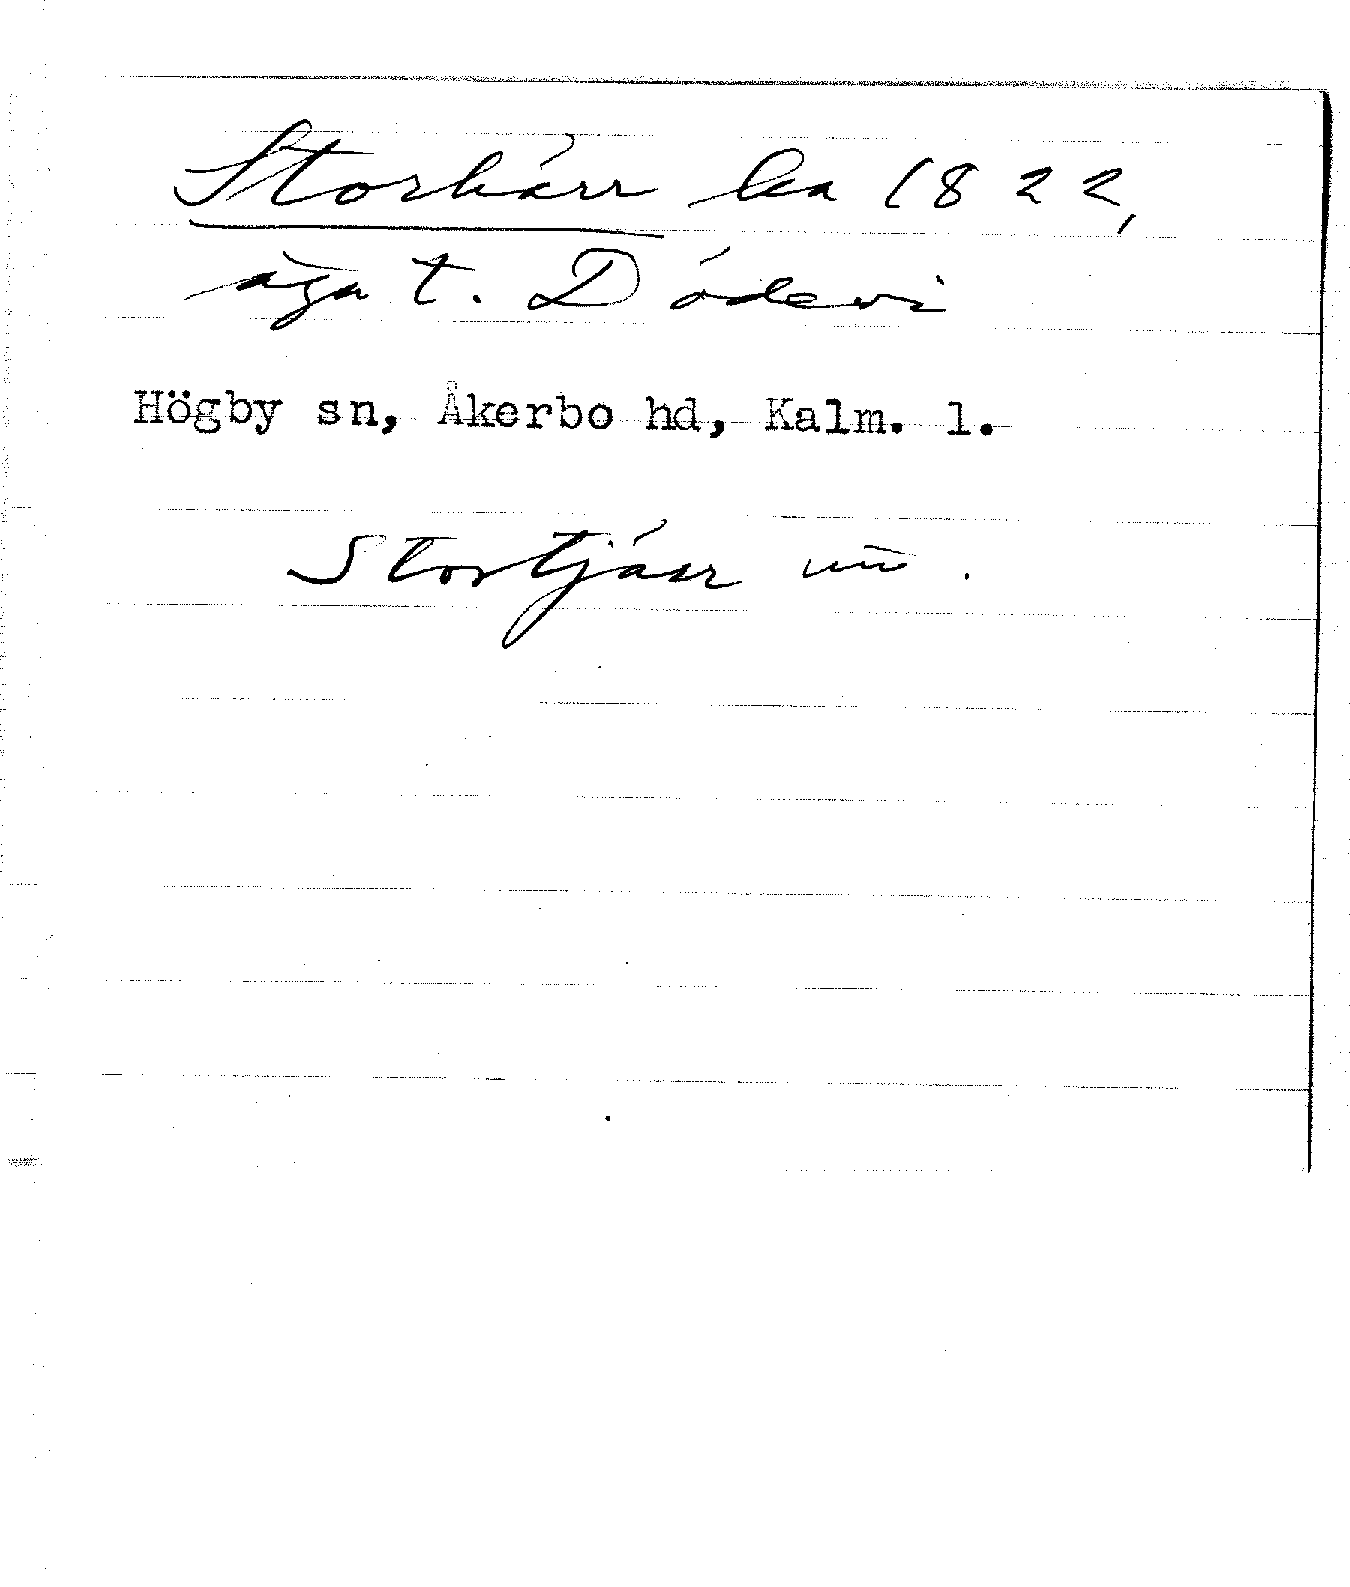 Storkärr ha 1822,
äga t. Dödevi
Högby sn, Åkerbo hd, Kalm. l.
Stortjärr